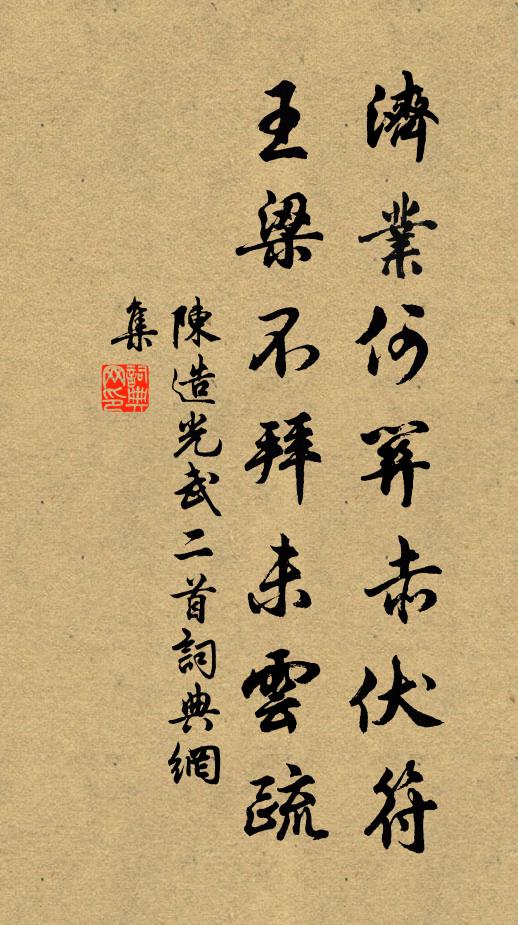 濟業何關赤伏符
王梁不拜未雲疏
陳造光武二首詞典網
集
詞典網印